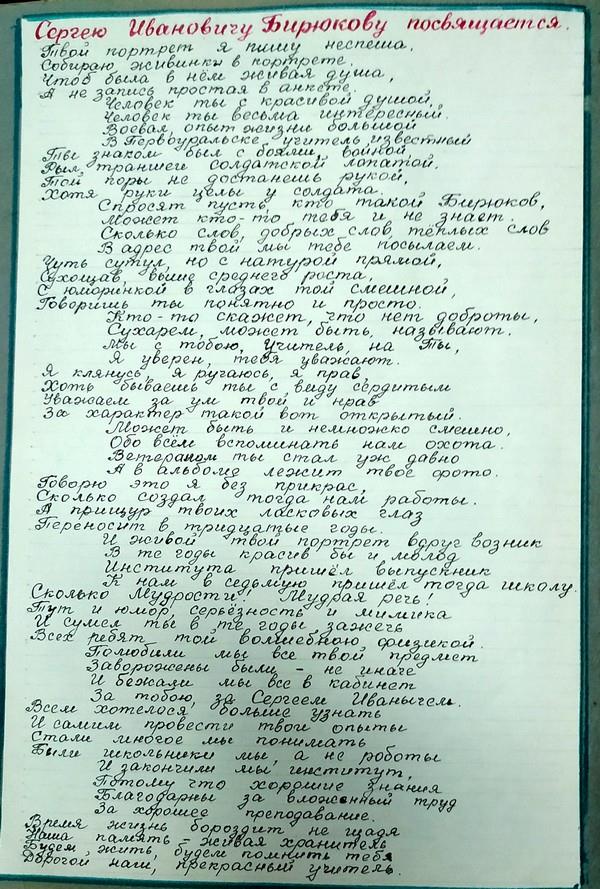 Сергею Ивановичу Бирюкову посвящается.
Твой портрет я пишу неспеша,
Собираю живинки в портрете.
Чтоб была в нём живая душа,
А не запись простая в анкете.
Человек ты с красивой душой,
Человек ты весьма интересный.
Воевал, опыт жизни большой
В Первоуральске учитель известный
Ты знаком был с боями, войной
Рыл траншеи солдатской лопатой.
Той поры не достанешь рукой,
Хотя руки целы у солдата.
Спросят пусть, кто такой Бирюков,
Может кто-то тебя и не знает.
Сколько слов, добрых слов, тёплых слов
В адрес твой мы тебе посылаем.
Чуть сутул, но с натурой прямой,
Сухощав, выше среднего роста,
С юморинкой в глазах той смешной,
Говоришь ты понятно и просто.
Кто-то скажет, что нет доброты,
Сухарем, может быть, называют.
Мы с тобою, Учитель, на Ты,
Я уверен, тебя уважают.
Я клянусь, я ругаюсь, я прав,
Хоть бываешь ты с виду сердитым
Уважаем за ум твой и нрав
За характер такой вот открытый.
Может быть и немножко смешно,
Обо всём вспоминать нам охота.
Ветераном ты стал уж давно
А в альбоме лежит твоё фото.
Говорю это я без прикрас,
Сколько создал тогда нам работы.
А прищур твоих ласковых глаз
Переносит в тридцатые годы.
И живой твой портрет вдруг возник
В те годы красив бы и молод
Института пришёл выпускник
К нам в седьмую пришёл тогда школу.
Сколько Мудрости! Мудрая речь!
Тут и юмор, серьёзность и мимика
И сумел ты в те годы зажечь
Всех ребят той волшебною физикой.
Полюбили мы все твой предмет
Заворожены были - не иначе
И бежали мы все в кабинет
За тобою, за Сергеем Иванычем.
Всем хотелося больше узнать
И самим провести твои опыты
Стали многое мы понимать
Были школьники мы, а не роботы
И закончили мы институт,
Потому что хорошие знания
Благодарны за вложенный труд
За хорошее преподавание.
Время жизнь бороздит не щадя
Наша память - живая хранитель
Будем жить, будем помнить тебя
Дорогой наш, прекрасный учитель.